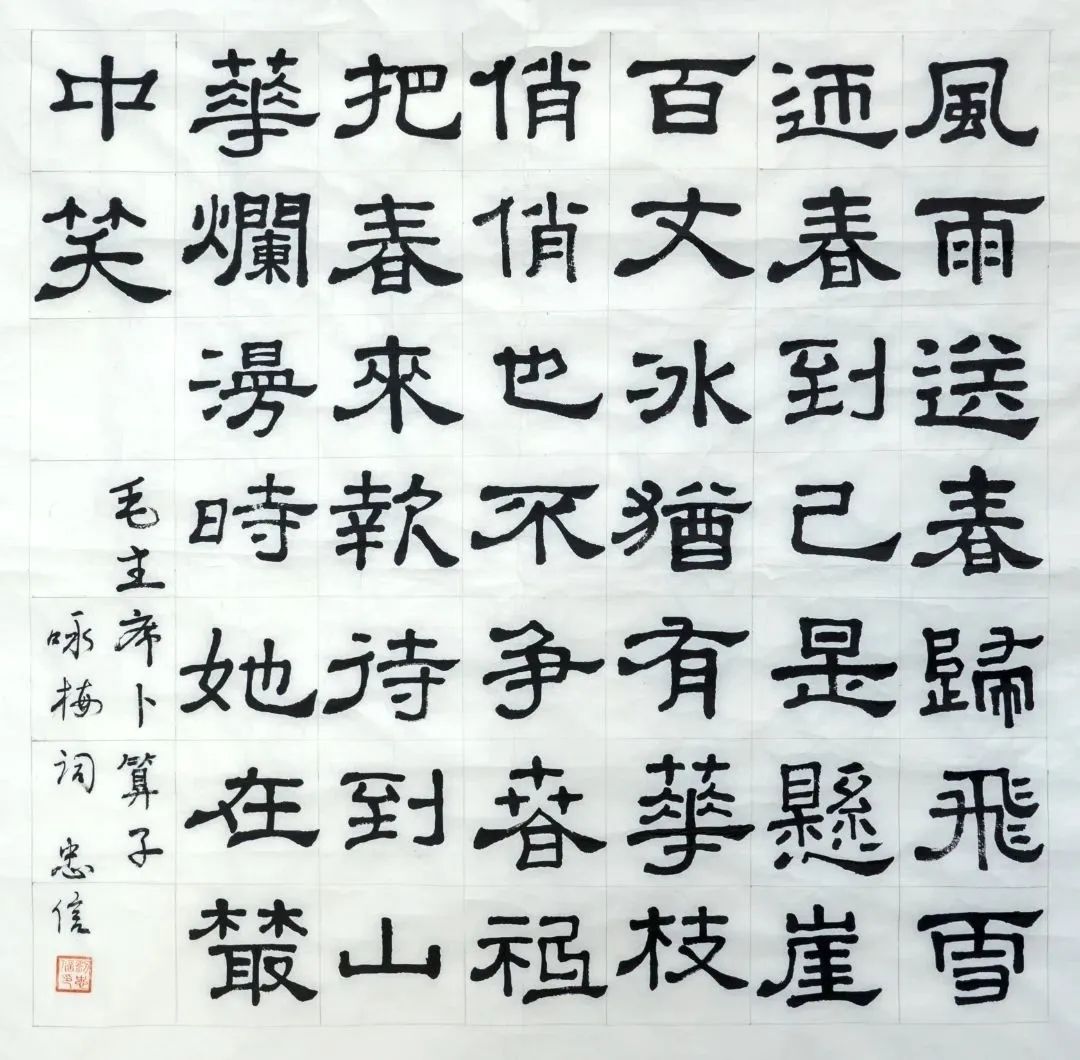 風雨送春歸飛雪
迎春到已是懸崖
百丈冰猶有華枝
俏俏也不争春祗
把春來報待到山
華爛漫時她在叢
中笑
毛主席卜算子
咏梅詞 忠信